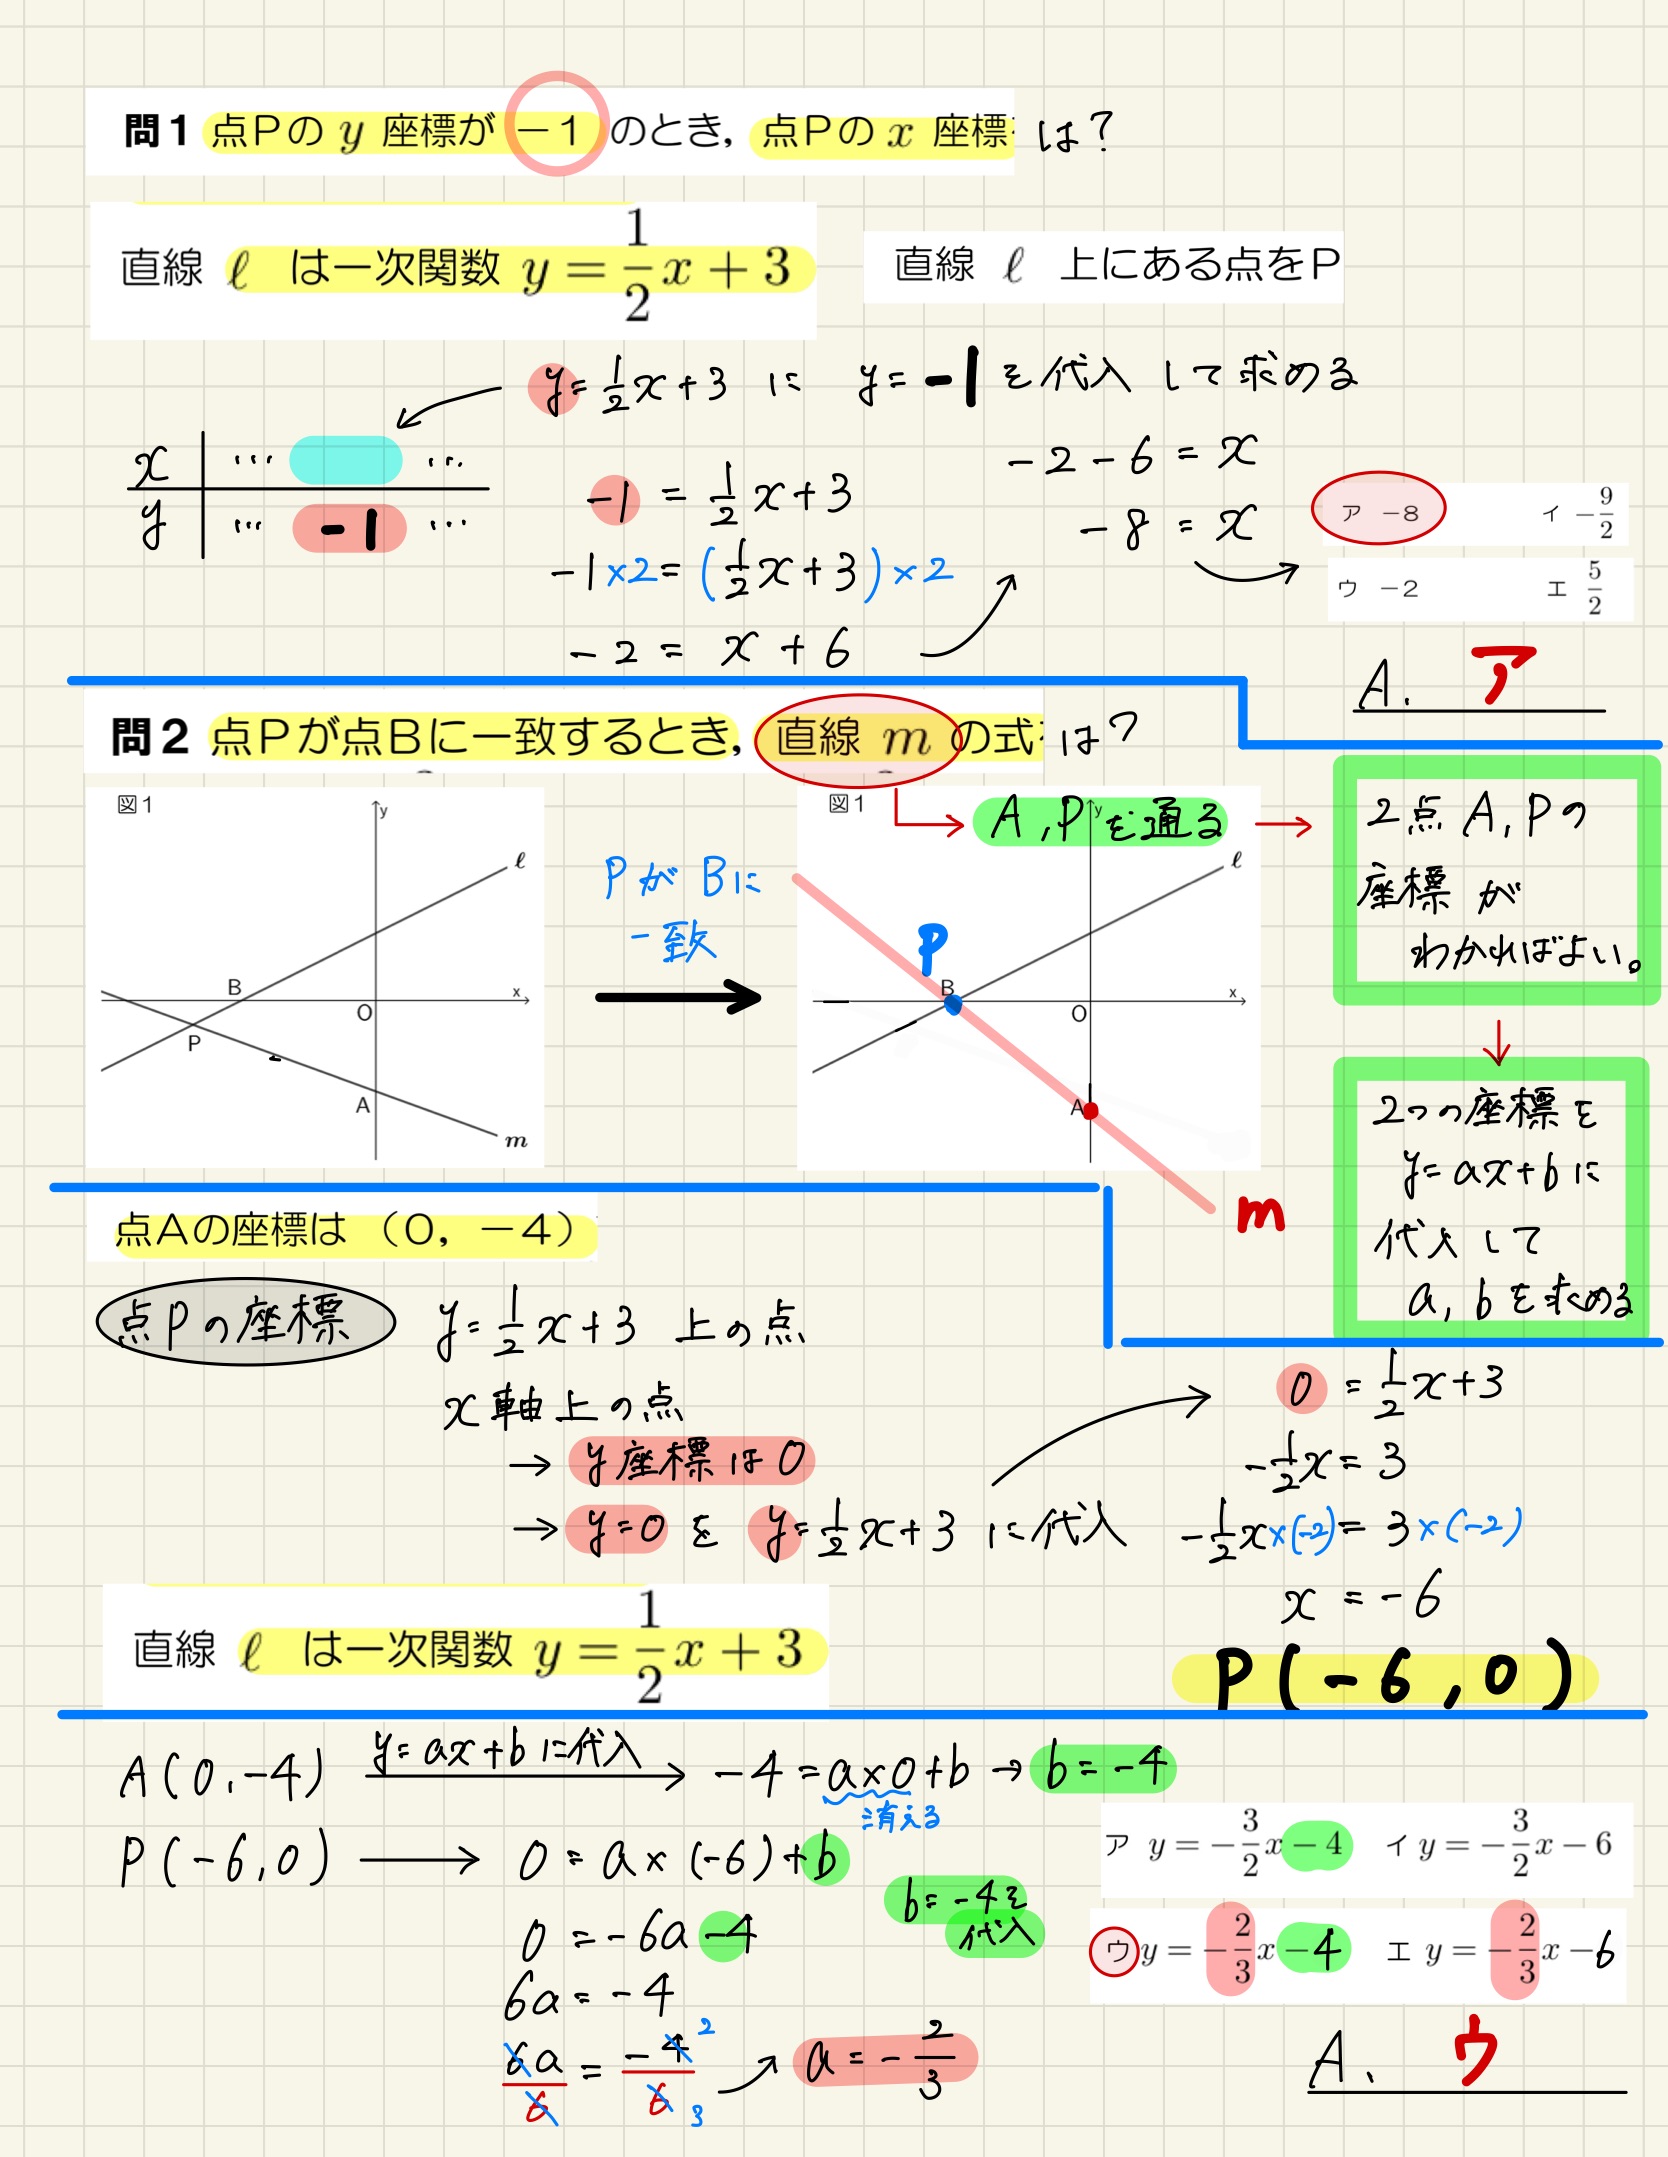 問1 点Pの y 座標が −1 のとき, 点Pの x 座標 は？
直線 ℓ は一次関数 y = 1/2 x + 3
直線 ℓ 上にある点をP
y = 1/2 x + 3 に y = −1 を代入して求める
x … …
y … −1 …
−1 = 1/2 x + 3
−1 ×2 = (1/2 x + 3) ×2
−2 = x + 6
−2 − 6 = x
−8 = x
ア −8 イ −9/2
ウ −2 エ 5/2
A. ア
問2 点Pが点Bに一致するとき, 直線 m の式 は？
図1
y
ℓ
B
x
O
P
A
m
PがBに
一致
図1
A, Pを通る
y
ℓ
P
B
x
O
A
m
2点A, Pの
座標が
わかればよい。
2つの座標を
y = ax + b に
代入して
a, b を求める
点Aの座標は (0, −4)
点Pの座標
y = 1/2 x + 3 上の点
x軸上の点
→ y座標は0
→ y = 0 を y = 1/2 x + 3 に代入
直線 ℓ は一次関数 y = 1/2 x + 3
0 = 1/2 x + 3
−1/2 x = 3
−1/2 x ×(−2) = 3 ×(−2)
x = −6
P(−6, 0)
A(0, −4) y = ax + b に代入 → −4 = a×0 + b → b = −4
消える
P(−6, 0) → 0 = a × (−6) + b
b = −4 を
代入
0 = −6a −4
6a = −4
6a/6 = −4/6 2 3
a = −2/3
ア y = −3/2 x − 4 イ y = −3/2 x − 6
ウ y = −2/3 x − 4 エ y = −2/3 x − 6
A. ウ